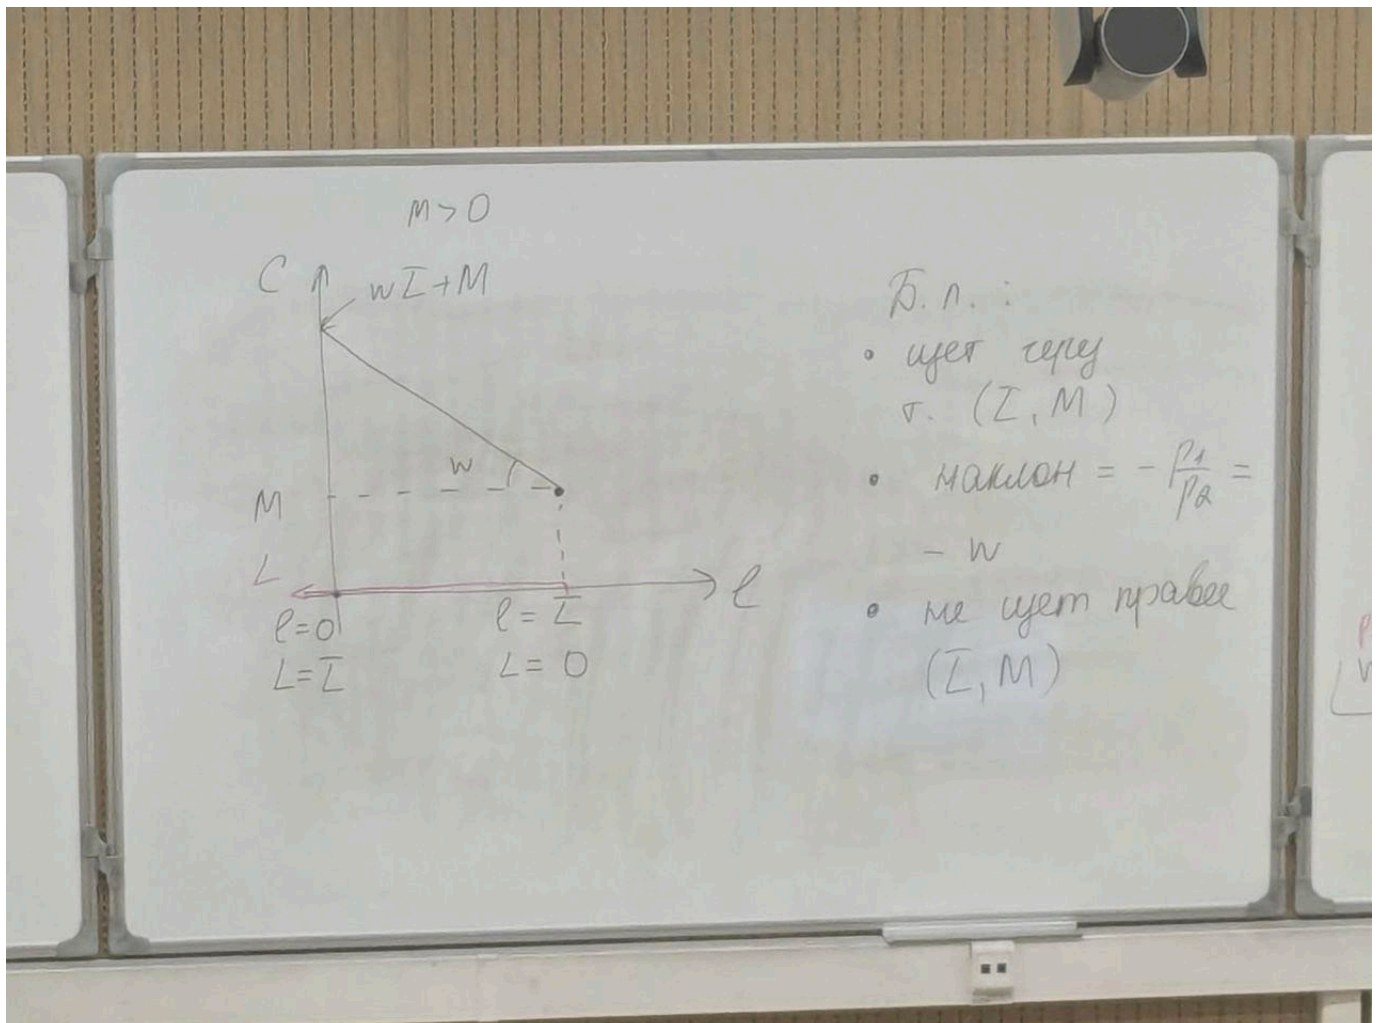 M > 0
C
wL̅ + M
w
M
L
l
l = 0
L = L̅
l = L̅
L = 0
Б. л. :
• идет через
т. (L̅, M)
• наклон = - p1/p2 =
- w
• не идет правее
(L̅, M)